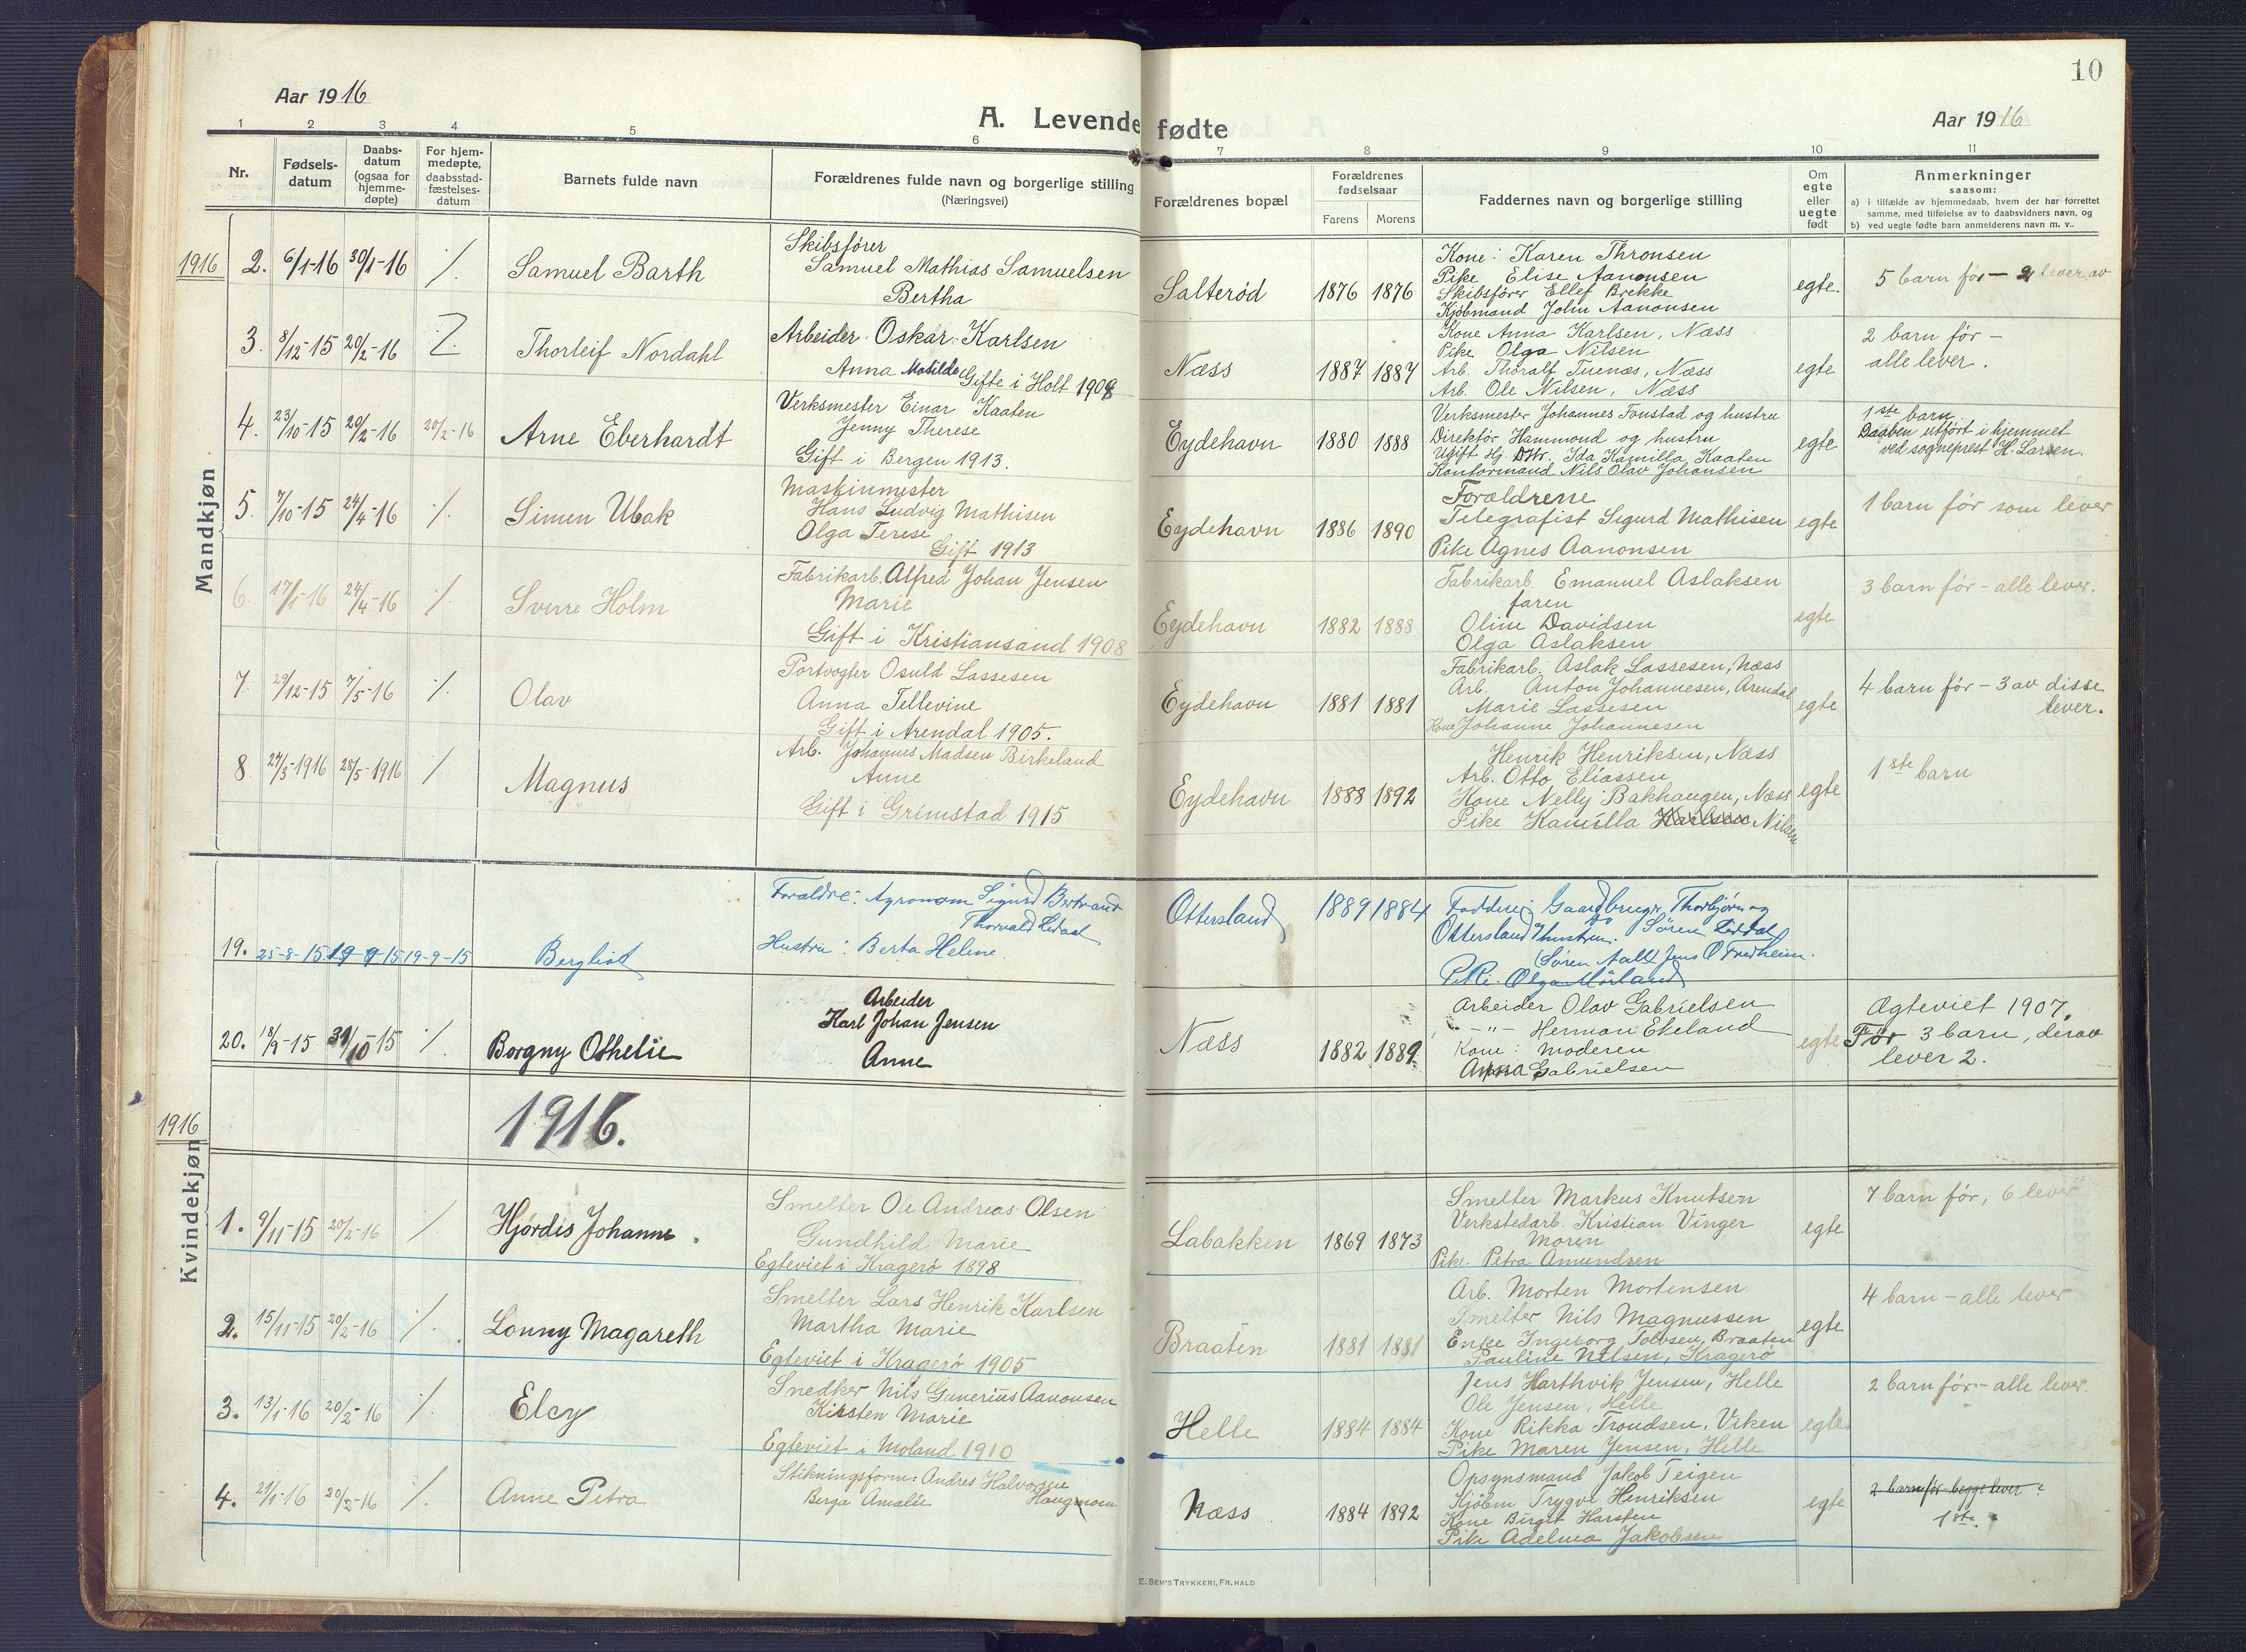 10
Aar 1916
A. Levende fødte
Aar 1916
1 2 3 4 5 6 7 8 9 10 11
Nr.
Fødsels-
datum
Daabs-
datum
(ogsaa for
hjemme-
døpte)
For hjem-
medøpte,
daabsstad-
fæstelses-
datum
Barnets fulde navn
Forældrenes fulde navn og borgerlige stilling
(Næringsvei)
Forældrenes bopæl
Forældrenes
fødselsaar
Farens Morens
Faddernes navn og borgerlige stilling
Om
egte
eller
uegte
født
Anmerkninger
saasom:
a) i tilfælde av hjemmedaab, hvem der har forrettet
samme, med tilføielse av to daabsvidners navn, og
b) ved uegte fødte barn anmelderens navn m. v..
Mandkjøn
1916
2. 6/1-16 30/1-16 ./.
Samuel Barth
Skibsfører
Samuel Mathias Samuelsen
Bertha
Salterød 1876 1876
Kone: Karen Thronsen
Pike Elise Aanonsen
Skibsfører Ellef Brekke
Kjøbmand John Aanonsen
egte.
5 barn før — 2 lever av
3. 8/12-15 20/2-16
Thorleif Nordahl
Arbeider Oskar Karlsen
Anna Matilde Gifte i Holt 1908
Næss 1887 1887
Kone Anna Karlsen, Næss
Pike Olga Nilsen
Arb. Thoralf Turenæs, Næss
Arb. Ole Nilsen, Næss
egte
2 barn før —
alle lever.
4. 23/10-15 20/2-16 20/2-16
Arne Eberhardt
Verksmester Einar Kaaten
Jenny Therese
Gift i Bergen 1913.
Eydehavn 1880 1888
Verksmester Johannes Fonstad og hustru
Direktør Hammond og hustru
Ugift Hj. Dttr. Ida Kamilla Kaaten
Kontormand Nils Olav Johansen
egte
1ste barn
Daaben utført i hjemmet
ved sogneprest H. Larsen.
5. 7/10-15 24/4-16 ./.
Simen Ubak
Maskinmester
Hans Ludvig Mathisen
Olga Terese
Gift 1913
Eydehavn 1886 1890
Forældrene
Telegrafist Sigurd Mathisen
Pike Agnes Aanonsen
egte
1 barn før som lever
6. 17/1-16 24/4-16 ./.
Sverre Holm
Fabrikarb. Alfred Johan Jensen
Marie
Gift i Kristiansand 1908
Eydehavn 1882 1888
Fabrikarb. Emanuel Aslaksen
faren
Oline Davidsen
Olga Aslaksen
egte
3 barn før — alle lever.
7. 29/12-15 7/5-16 ./.
Olav
Portvogter Osuld Lassesen
Anna Tellevine
Gift i Arendal 1905.
Eydehavn 1881 1881
Fabrikarb. Aslak Lassesen, Næss
Arb. Anton Johannesen, Arendal
Marie Lassesen
Kone Johanne Johannesen
egte
4 barn før — 3 av disse
lever.
8. 27/3-1916 28/5-1916 ./.
Magnus
Arb. Johannes Madsen Birkeland
Anne
Gift i Grimstad 1915
Eydehavn 1888 1892
Henrik Henriksen, Næss
Arb. Otto Eliassen
Kone Nelly Bakhaugen, Næss
Pike Kamilla Karlsen Nilsen
egte
1ste barn
19. 25-8-15 19-9-15 19-9-15
Bergliot
Foraldre: Agronom Sigurd Bertrand
Thorvald
Hustru: Berta Helene.
Ottersland 1889 1884
Faddere: Gaardbruger Thorbjørn og
Ottersland hustru. Søren
(Søren Aall) Jens O Fredheim.
Pike: Olga Mørland
20. 18/9-15 31/10-15 ./.
Borgny Othelie
Arbeider
Karl Johan Jensen
Anne
Næss 1882 1889.
Arbeider Olav Gabrielsen
-"- Herman Ekeland
Kone: Moderen
Anna Gabrielsen
egte
Ægteviet 1907.
Før 3 barn, derav
lever 2.
1916
1916.
Kvindekjøn
1. 9/11-15 20/2-16 ./.
Hjørdis Johanne.
Smelter Ole Andreas Olsen
Gundhild Marie
Egteviet i Kragerø 1898
Labakken 1869 1873
Smelter Markus Knutsen
Verkstedarb. Kristian Vinger
Moren
Pike. Petra Amundsen
egte
7 barn før, 6 lever
2. 15/11-15 20/2-16 ./.
Lonny Magareth
Smelter Lars Henrik Karlsen
Martha Marie
Egteviet i Kragerø 1905
Braaten 1881 1881
Arb. Morten Mortensen
Smelter Nils Magnussen
Enke Ingeborg Tobsen, Braaten
Pauline Nilsen, Kragerø
egte
4 barn — alle lever
3. 13/1-16 20/2-16 ./.
Elcy
Snedker Nils Gunerius Aanonsen
Kirsten Marie
Egteviet i Moland 1910
Helle 1884 1884
Jens Harthvik Jensen, Helle
Ole Jensen, Helle
Kone Rikka Trondsen, Viken
Pike Maren Jensen, Helle
egte
2 barn før — alle lever.
4. 29/1-16 20/2-16 ./.
Anne Petra
Stikningsform. Andres Halvorsen
Haugmoen
Berga Amalie
Næss 1884 1892
Opsynsmand Jakob Teigen
Kjøbm Trygve Henriksen
Kone Birgit Harsten
Pike Adelma Jakobsen
egte
2 barn før begge lever
1ste.
E. SEM'S TRYKKERI, FR.HALD